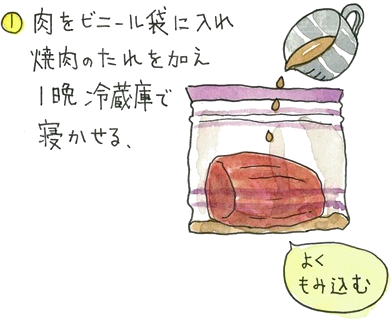 ① 肉をビニール袋に入れ
焼肉のたれを加え
1晩冷蔵庫で
寝かせる、
よく
もみ込む